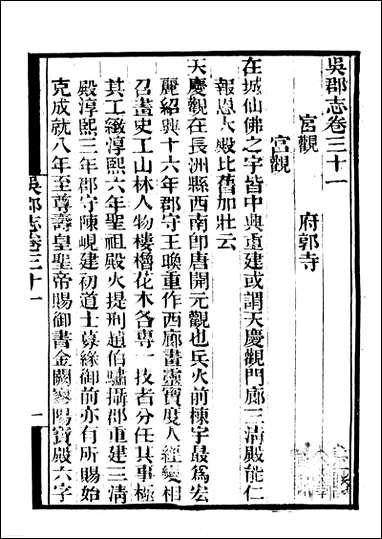 吳郡志卷三十一
宮觀　府郭寺
宮觀
在城仙佛之宇皆中興重建或謂天慶觀門廊三清殿能仁
報恩大殿比舊加壯云
天慶觀在長洲縣西南卽唐開元觀也兵火前棟宇最爲宏
麗紹興十六年郡守王㬇重作兩廊畫靈寶度人經變相
召畫史工山林人物樓櫓花木各專一技者分任其事極
其工緻淳熙六年聖祖殿火提刑趙伯驌攝郡重建三清
殿淳熙三年郡守陳峴建初道士募緣御前亦有所賜始
克成就八年至尊壽皇聖帝賜御書金闕寥陽寶殿六字
吳郡志卷三十一
一